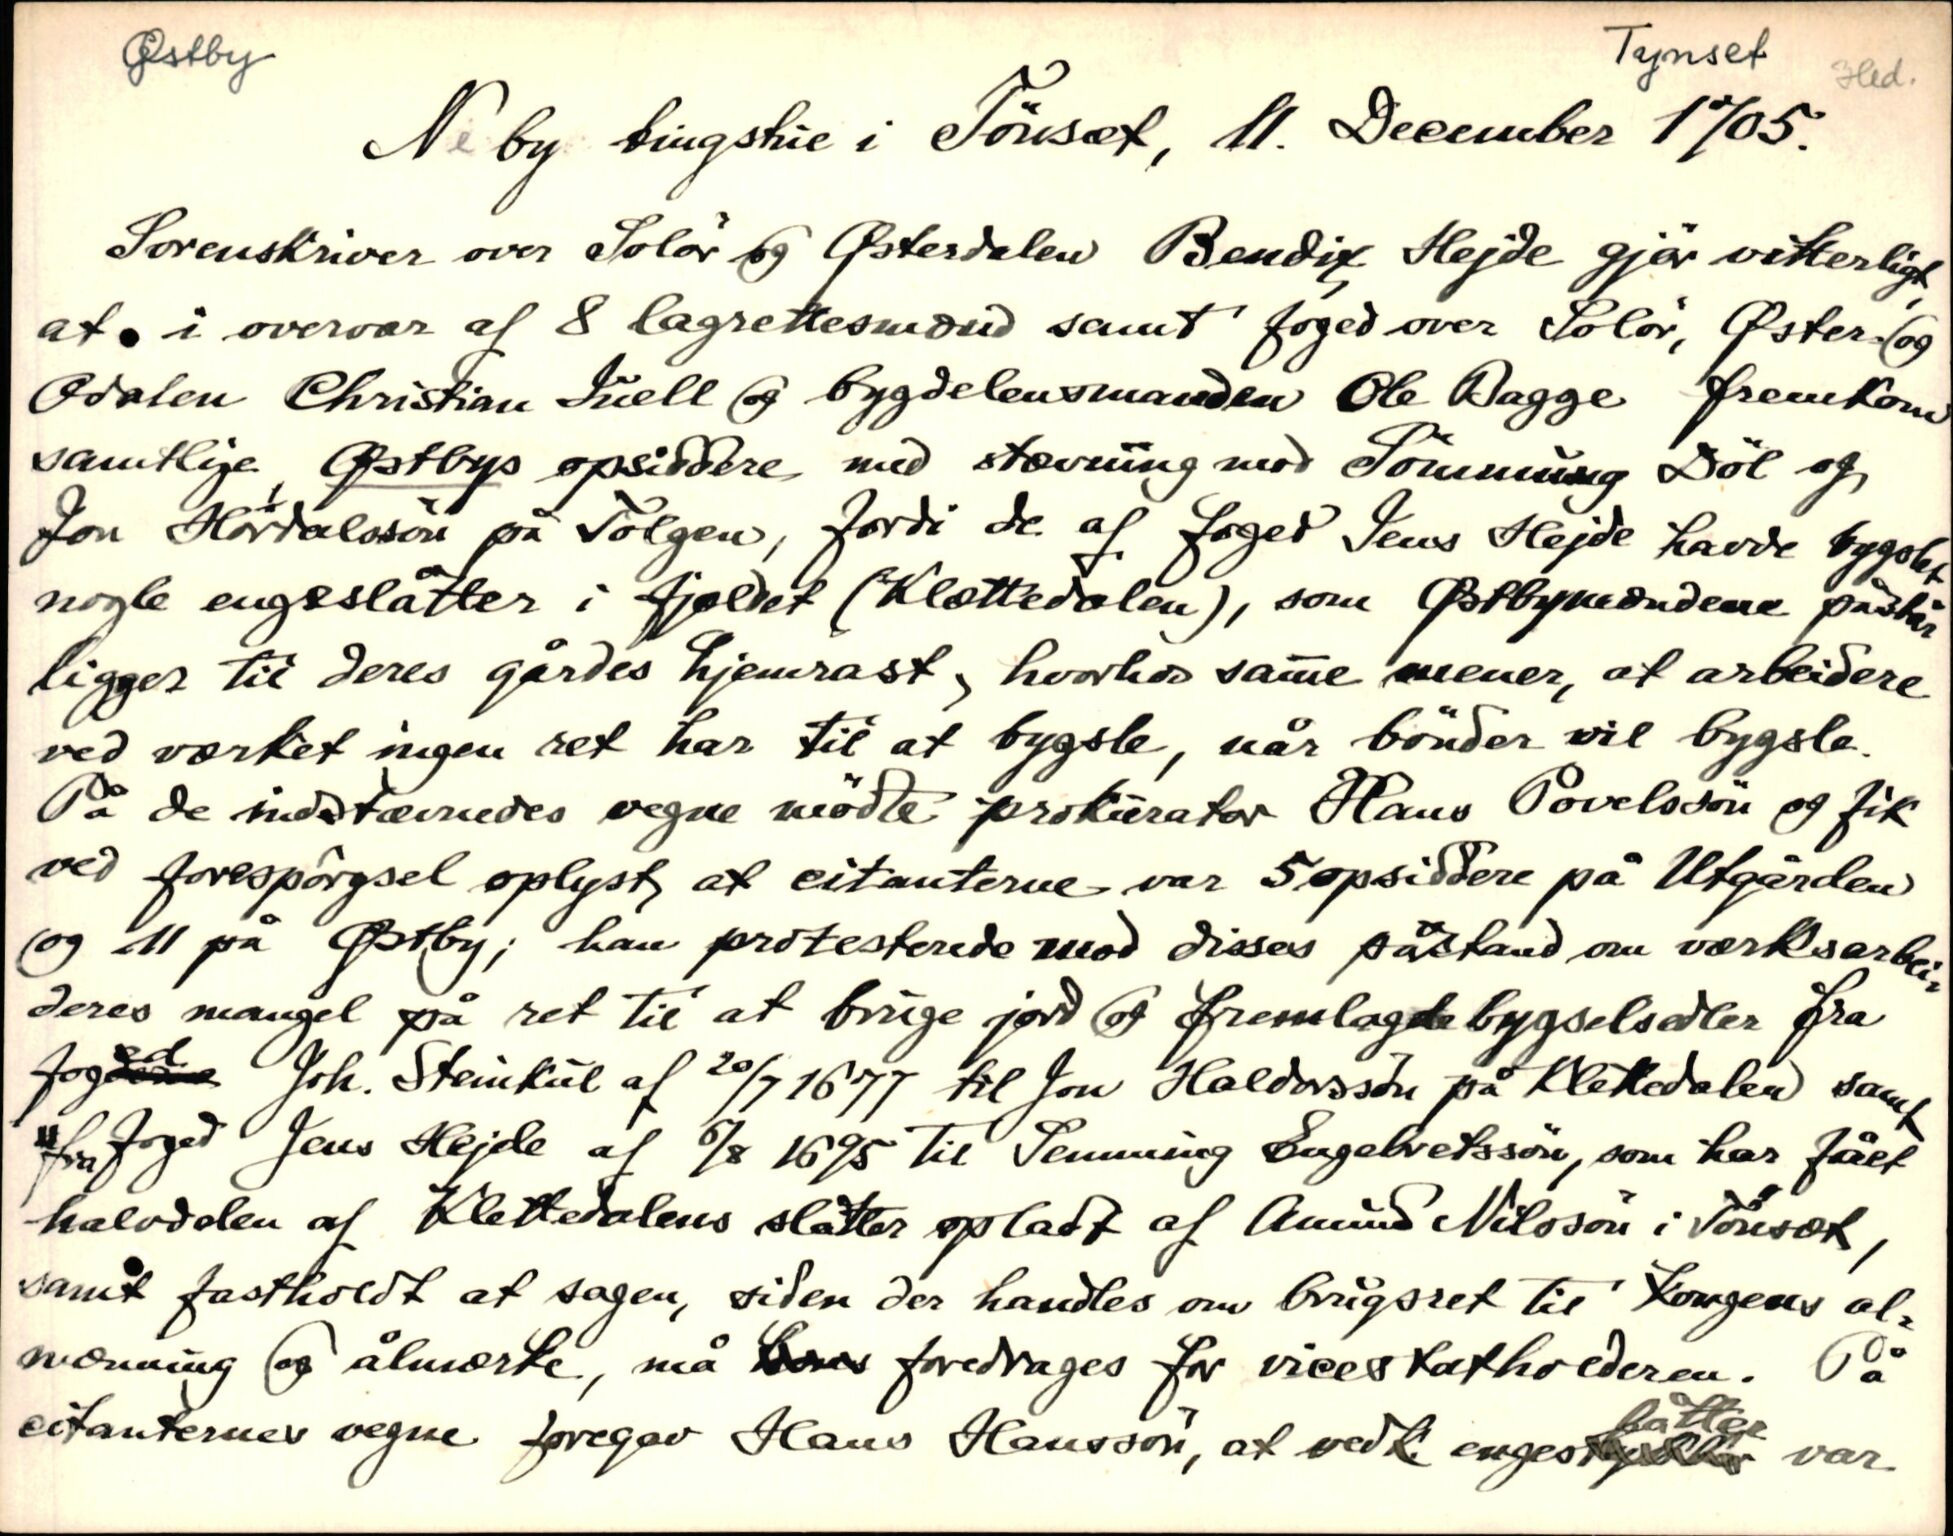 Østby
Tynset
Hed.
Neby tingstue i Tönsæt, 11. December 1705.
Sorenskriver over Solör og Østerdalen Bendix Hejde gjör vitterligt,
at i overvær af 8 lagrettesmænd samt foged over Solör, Øster- og
Odalen Christian Juell og bygdelensmanden Ole Bagge fremkom
samtlige Østbys opsiddere med stævning mod Tömmüng Döl og
Jon Hördalssön på Tolgen, fordi de af foged Jens Hejde havde bygslet
nogle engeslåtter i fjeldet (Klættedalen), som Østbymændene påstår
ligger til deres gårdes hjemrast, hvorhos samme mener, at arbeidere
ved værket ingen ret har til at bygsle, når bönder vil bygsle.
På de indstævnedes vegne mödte prokurator Hans Povelssön og fik
ved forespörgsel oplyst, at citanterne var 5 opsiddere på Utgården
og 11 på Østby; han protesterede mod disses påstand om værksarbei-
deres mangel på ret til at bruge jord og fremlagde bygselsedler fra
foged Joh. Steinkul af 20/7 1677 til Jon Haldorssön på Klettedalen samt
fra foged Jens Hejde af 6/8 1695 til Temming Engelbretssön, som har fået
halvdelen af Klettedalens slåtter opladt af Amund Nilssön i Tönsæt,
samt fastholdt at sagen, siden der handles om brugsret til kongens al-
menning og ålmærke, må foredrages for vicestatholderen. På
citanternes vegne foregav Hans Hanssön, at vedk. engeslåtter var